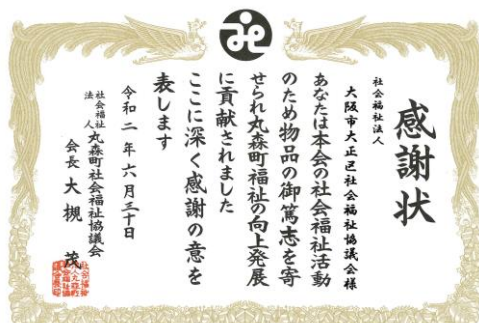 感謝状
社会福祉法人
大阪市大正区社会福祉協議会様
あなたは本会の社会福祉活動
のため物品の御篤志を寄
せられ丸森町福祉の向上発展
に貢献されました
ここに深く感謝の意を
表します
令和二年六月三十日
社会福祉法人 丸森町社会福祉協議会
会長 大槻 茂